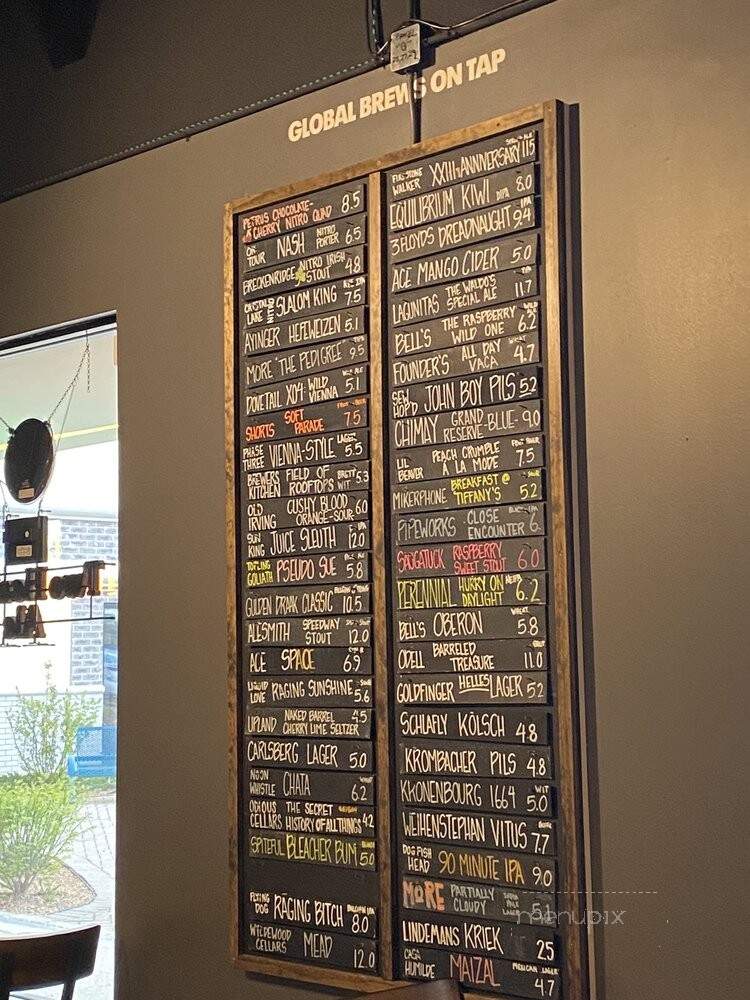 GLOBAL BREWS ON TAP
PETRUS CHOCOLATE-
CHERRY NITRO QUAD 8.5
ON TOUR NASH NITRO PORTER 6.5
BRECKENRIDGE NITRO IRISH STOUT 4.8
CRYSTAL LAKE NITRO SLALOM KING 7.5
AYINGER HEFEWEIZEN 5.1
MORE "THE PEDIGREE" 9.5
DOVETAIL X04: WILD VIENNA 5.1
SHORTS SOFT PARADE 7.5
PHASE THREE VIENNA-STYLE LAGER 5.5
BREWERS KITCHEN FIELD OF ROOFTOPS BRETT WIT 5.3
OLD IRVING CUSHY BLOOD ORANGE-SOUR 6.0
SUN KING JUICE SLEUTH 12.0
TOPLING GOLIATH PSEUDO SUE 5.8
GULDEN DRAAK CLASSIC 10.5
ALESMITH SPEEDWAY STOUT 12.0
ACE SPACE 6.9
LIQUID LOVE RAGING SUNSHINE 5.6
UPLAND NAKED BARREL CHERRY LIME SELTZER 4.5
CARLSBERG LAGER 5.0
NOON WHISTLE CHATA 6.2
OBVIOUS CELLARS THE SECRET HISTORY OF ALL THINGS 4.2
SPITEFUL BLEACHER BUM 5.0
FLYING DOG RAGING BITCH 8.0
WILDEWOOD CELLARS MEAD 12.0
FIRESTONE WALKER XXIII-ANNIVERSARY 11.5
EQUILIBRIUM KIWI DIPA 8.0
3 FLOYDS DREADNAUGHT IPA 9.4
ACE MANGO CIDER 5.0
LAGUNITAS THE WALDO'S SPECIAL ALE 11.7
BELL'S THE RASPBERRY WILD ONE 6.2
FOUNDER'S ALL DAY VACA 4.7
SEW HOP'D JOHN BOY PILS 5.2
CHIMAY GRAND RESERVE-BLUE- 9.0
LIL BEAVER PEACH CRUMBLE A LA MODE 7.5
MIKERPHONE BREAKFAST @ TIFFANY'S 5.2
PIPEWORKS CLOSE ENCOUNTER 6.
SAUGATUCK RASPBERRY SWEET STOUT 6.0
PERENNIAL HURRY ON DAYLIGHT 6.2
BELL'S OBERON WHEAT 5.8
ODELL BARRELED TREASURE 11.0
GOLDFINGER HELLES LAGER 5.2
SCHLAFLY KÖLSCH 4.8
KROMBACHER PILS 4.8
KRONENBOURG 1664 WIT 5.0
WEIHENSTEPHAN VITUS 7.7
DOGFISH HEAD 90 MINUTE IPA 9.0
MORE PARTIALLY CLOUDY INDIA PALE LAGER 5.1
LINDEMANS KRIEK 2.5
CASA HUMILDE MAIZAL MEXICAN LAGER 4.7
menupix